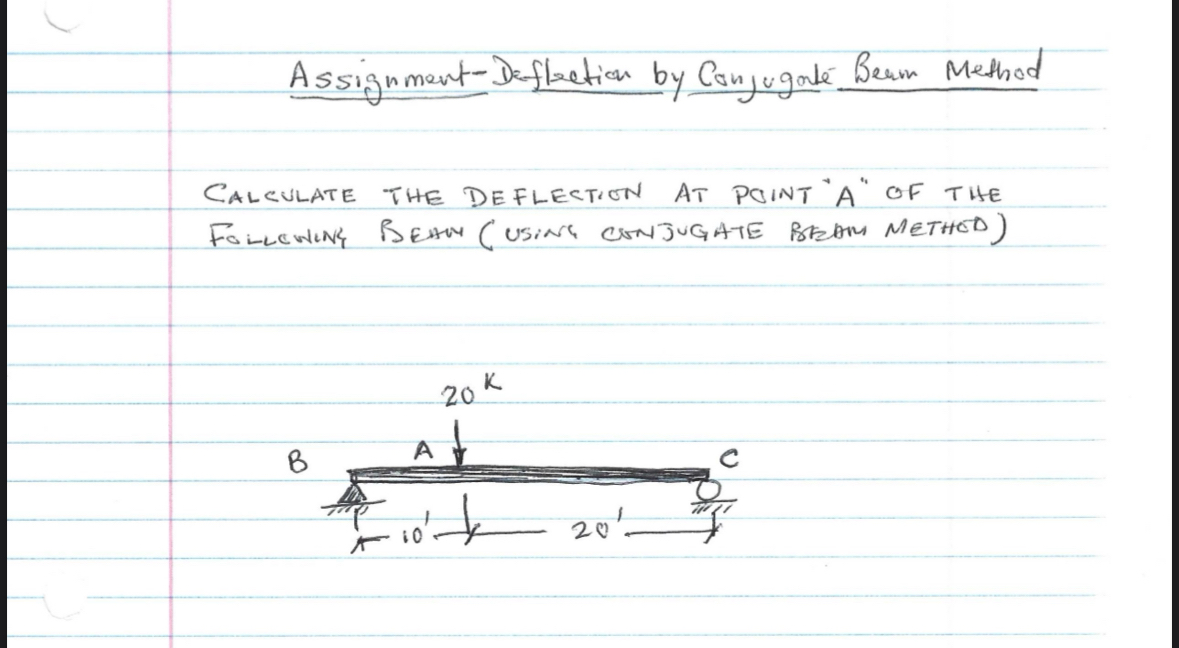 Assignment- Deflection by Conjugate Beam Method
CALCULATE THE DEFLECTION AT POINT "A" OF THE
FOLLOWING BEAM (USING CONJUGATE BEAM METHOD)
20 K
B A C
10' 20'